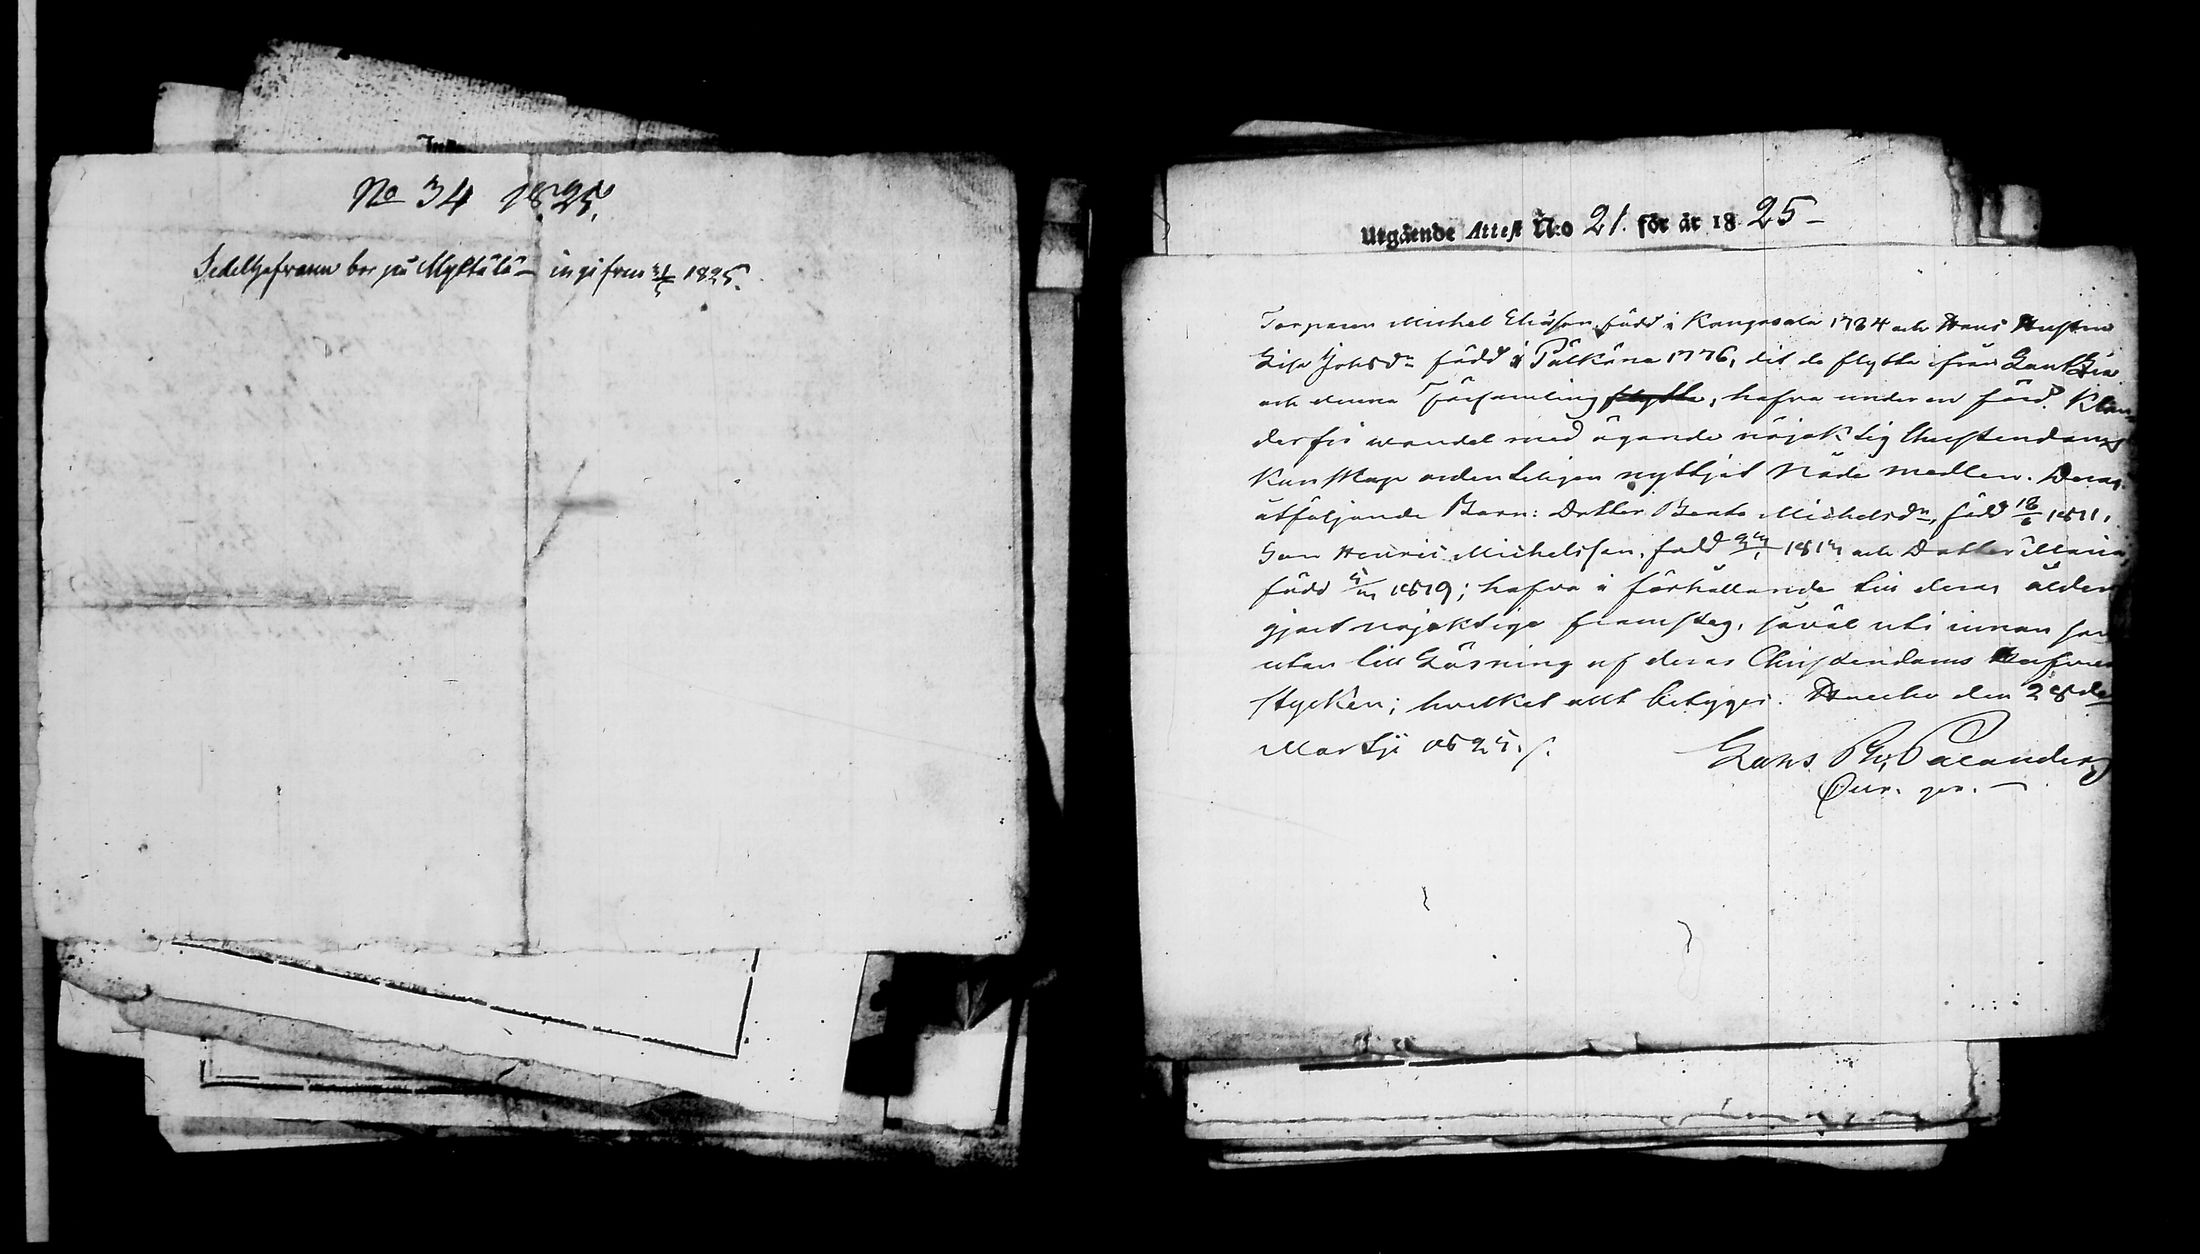 No 34 1825.
Sedelhafvaren bor på Myttälä – ingifven 31/5 1825.
Utgående Attest N:o 21. för år 1825 –
Torparen Michel Eliasson, född i Kangasala 1784 och Hans Hustru
Lisa Johsdr född i Pälkäne 1776, dit de flytta ifrån
och denna Församling flytta, hafva under en förd Klan-
derfri wandel med ägande nöjaktig Christendoms
Kunskap ordenteligen nyttjat Nåde medlen. Deras
åtföljande Barn: Dotter Beata Michelsdr, född 18/6 1811,
Son Henric Michelsson, född och Dotter Maria,
född 1819; hafva i förhållande till deras ålder
gjort nöjaktige framsteg, såväl uti innan som
utan till Läsning af deras Christendoms
stycken; hvilket allt betygges. Hauho den 28de
Martii 1825.
Palander